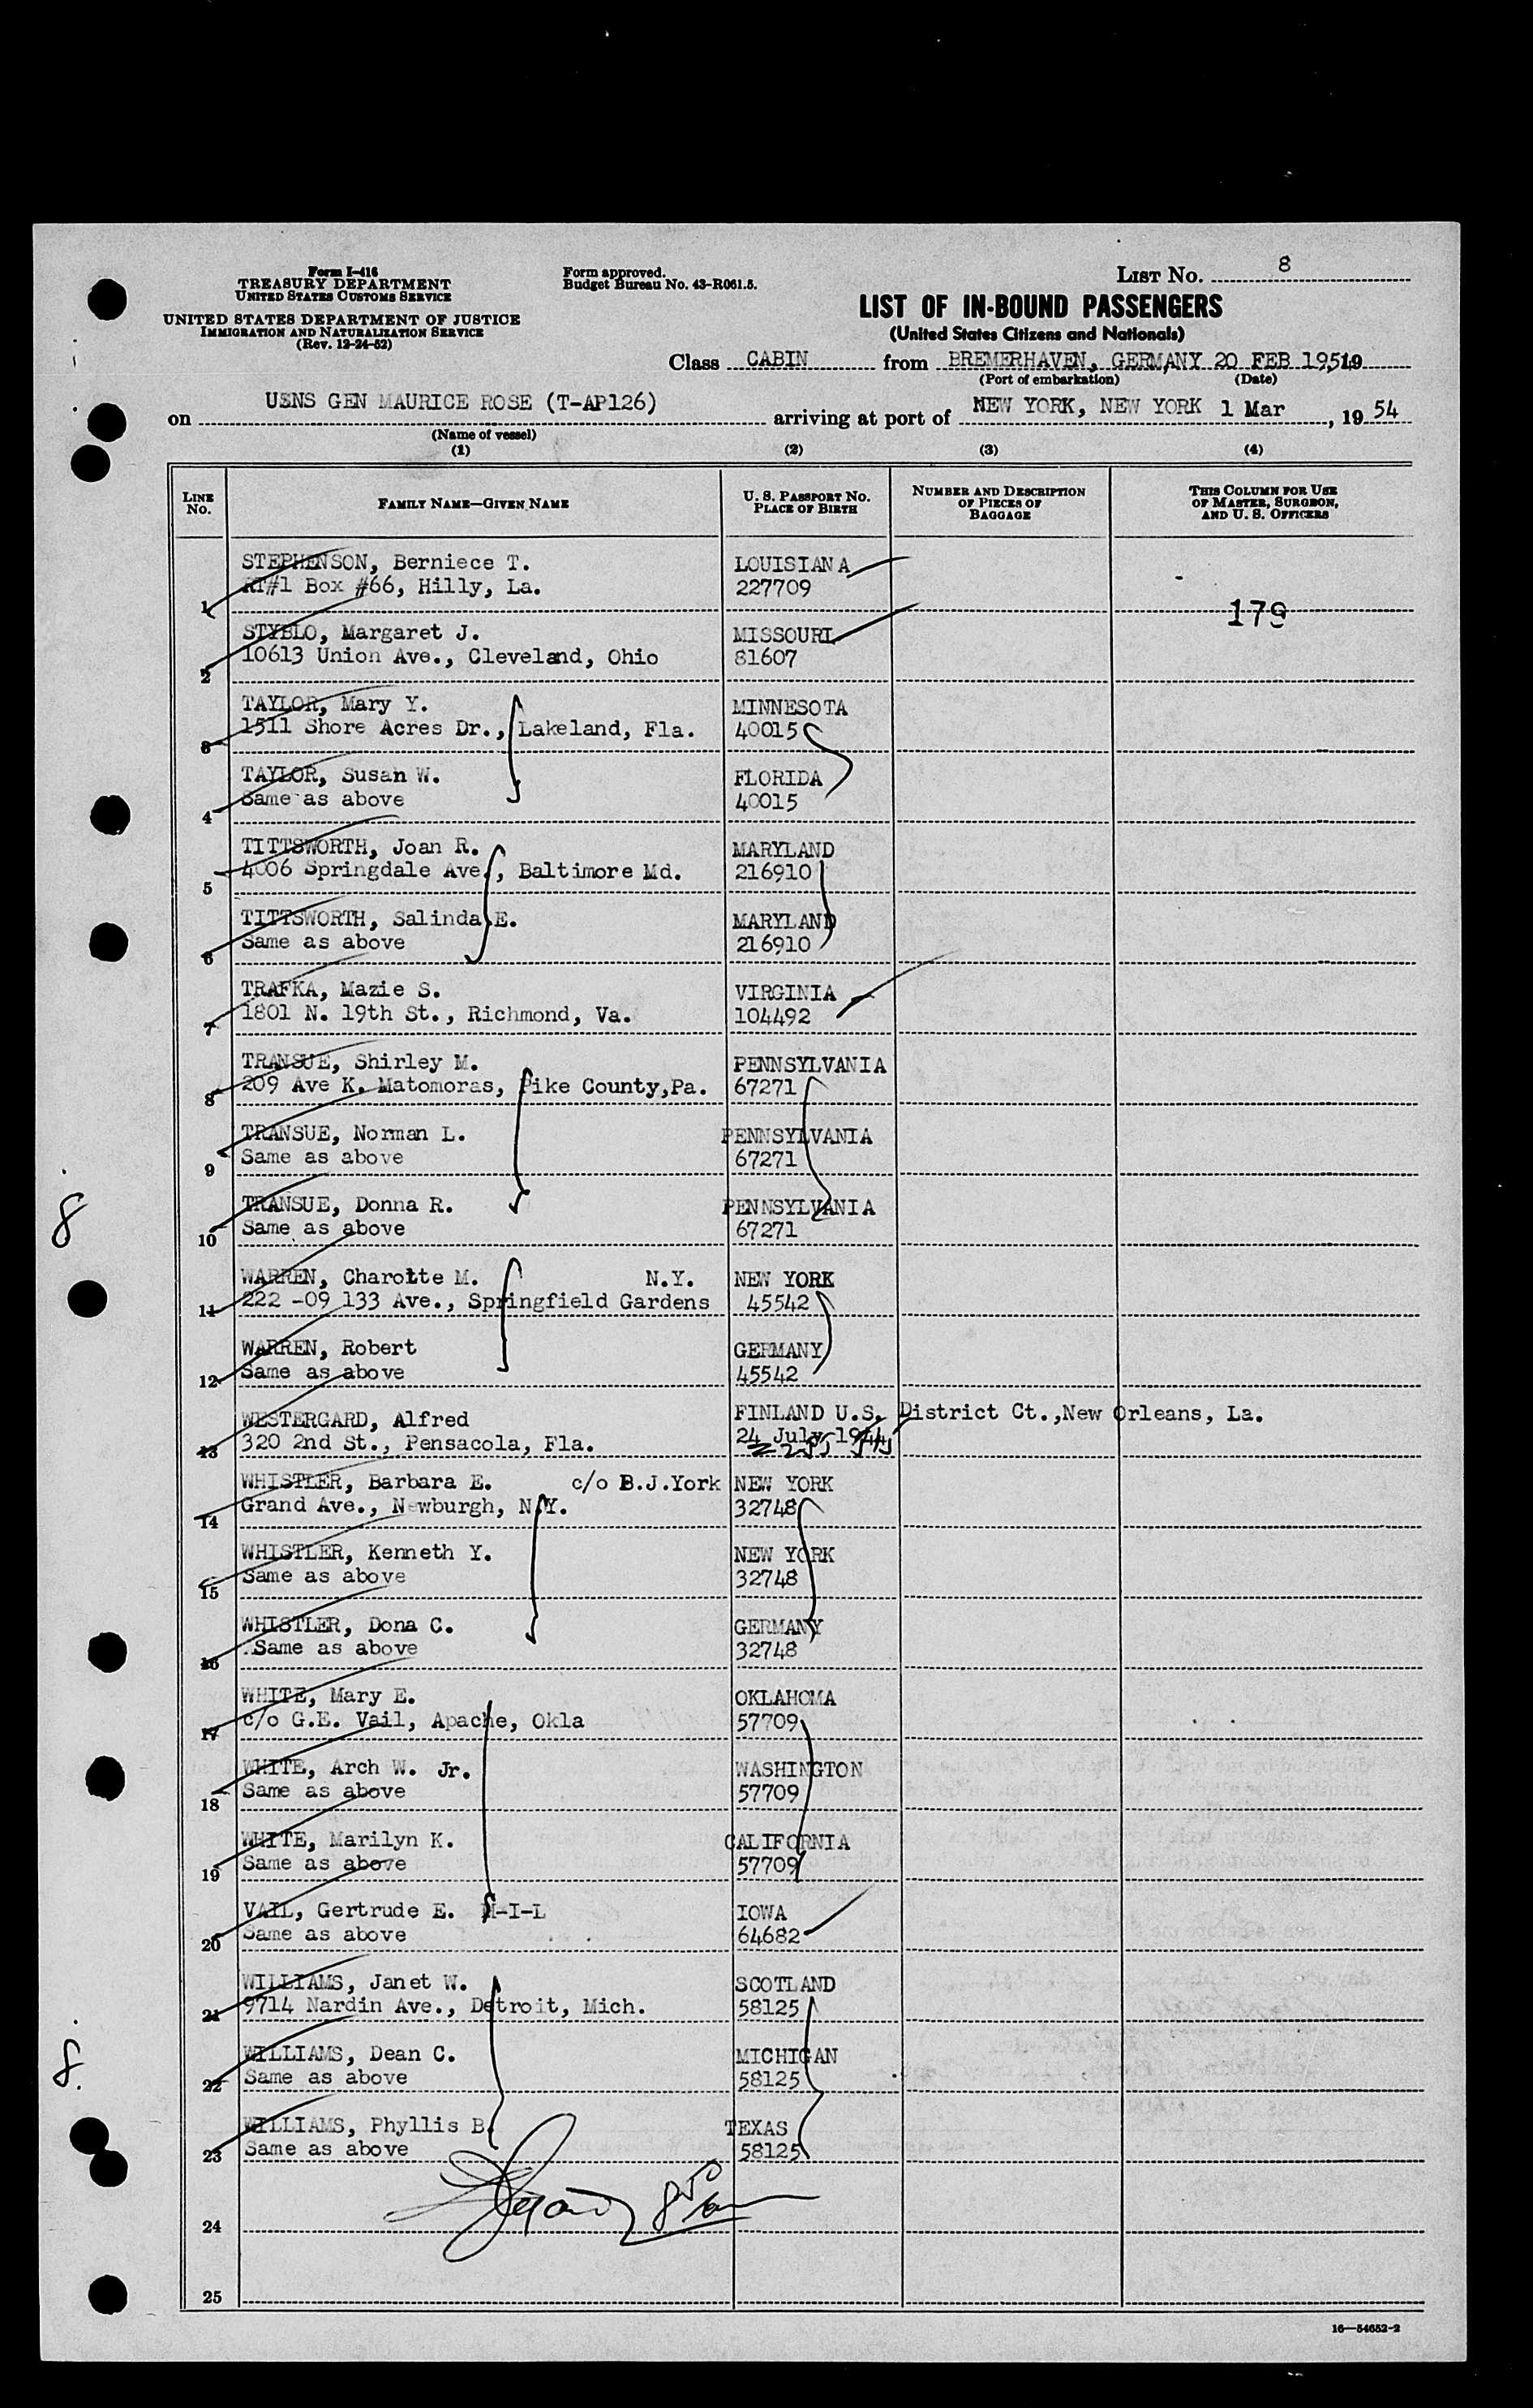 Form I-416
TREASURY DEPARTMENT
UNITED STATES CUSTOMS SERVICE
UNITED STATES DEPARTMENT OF JUSTICE
IMMIGRATION AND NATURALIZATION SERVICE
(Rev. 12-24-52)
Form approved.
Budget Bureau No. 43-R061.5.
LIST NO. 8
LIST OF IN-BOUND PASSENGERS
(United States Citizens and Nationals)
Class CABIN from BREMERHAVEN, GERMANY 20 FEB 1954
(Port of embarkation) (Date)
on USNS GEN MAURICE ROSE (T-AP126) arriving at port of NEW YORK, NEW YORK 1 Mar, 19 54
(Name of vessel)
(1) (2) (3) (4)
LINE NO. FAMILY NAME—GIVEN NAME U. S. PASSPORT NO. PLACE OF BIRTH NUMBER AND DESCRIPTION OF PIECES OF BAGGAGE THIS COLUMN FOR USE OF MASTER, SURGEON, AND U. S. OFFICERS
STEPHENSON, Berniece T. LOUISIANA
1 RT#1 Box #66, Hilly, La. 227709
179
STYBLO, Margaret J. MISSOURI
2 10613 Union Ave., Cleveland, Ohio 81607
TAYLOR, Mary Y. MINNESOTA
3 1511 Shore Acres Dr., Lakeland, Fla. 40015
TAYLOR, Susan W. FLORIDA
4 Same as above 40015
TITTSWORTH, Joan R. MARYLAND
5 4006 Springdale Ave., Baltimore Md. 216910
TITTSWORTH, Salinda E. MARYLAND
6 Same as above 216910
TRAFKA, Mazie S. VIRGINIA
7 1801 N. 19th St., Richmond, Va. 104492
TRANSUE, Shirley M. PENNSYLVANIA
8 209 Ave K. Matomoras, Pike County,Pa. 67271
TRANSUE, Norman L. PENNSYLVANIA
9 Same as above 67271
TRANSUE, Donna R. PENNSYLVANIA
10 Same as above 67271
8
WARREN, Charotte M. N.Y. NEW YORK
11 222 -09 133 Ave., Springfield Gardens 45542
WARREN, Robert GERMANY
12 Same as above 45542
WESTERGARD, Alfred FINLAND U.S. District Ct.,New Orleans, La.
13 320 2nd St., Pensacola, Fla. 24 July 1944
WHISTLER, Barbara E. c/o B.J.York NEW YORK
14 Grand Ave., Newburgh, N.Y. 32748
WHISTLER, Kenneth Y. NEW YORK
15 Same as above 32748
WHISTLER, Dona C. GERMANY
16 .Same as above 32748
WHITE, Mary E. OKLAHOMA
17 c/o G.E. Vail, Apache, Okla 57709
WHITE, Arch W. Jr. WASHINGTON
18 Same as above 57709
WHITE, Marilyn K. CALIFORNIA
19 Same as above 57709
VAIL, Gertrude E. M-I-L IOWA
20 Same as above 64682
WILLIAMS, Janet W. SCOTLAND
21 9714 Nardin Ave., Detroit, Mich. 58125
WILLIAMS, Dean C. MICHIGAN
22 Same as above 58125
8.
WILLIAMS, Phyllis B. TEXAS
23 Same as above 58125
24
25
16—54652-2